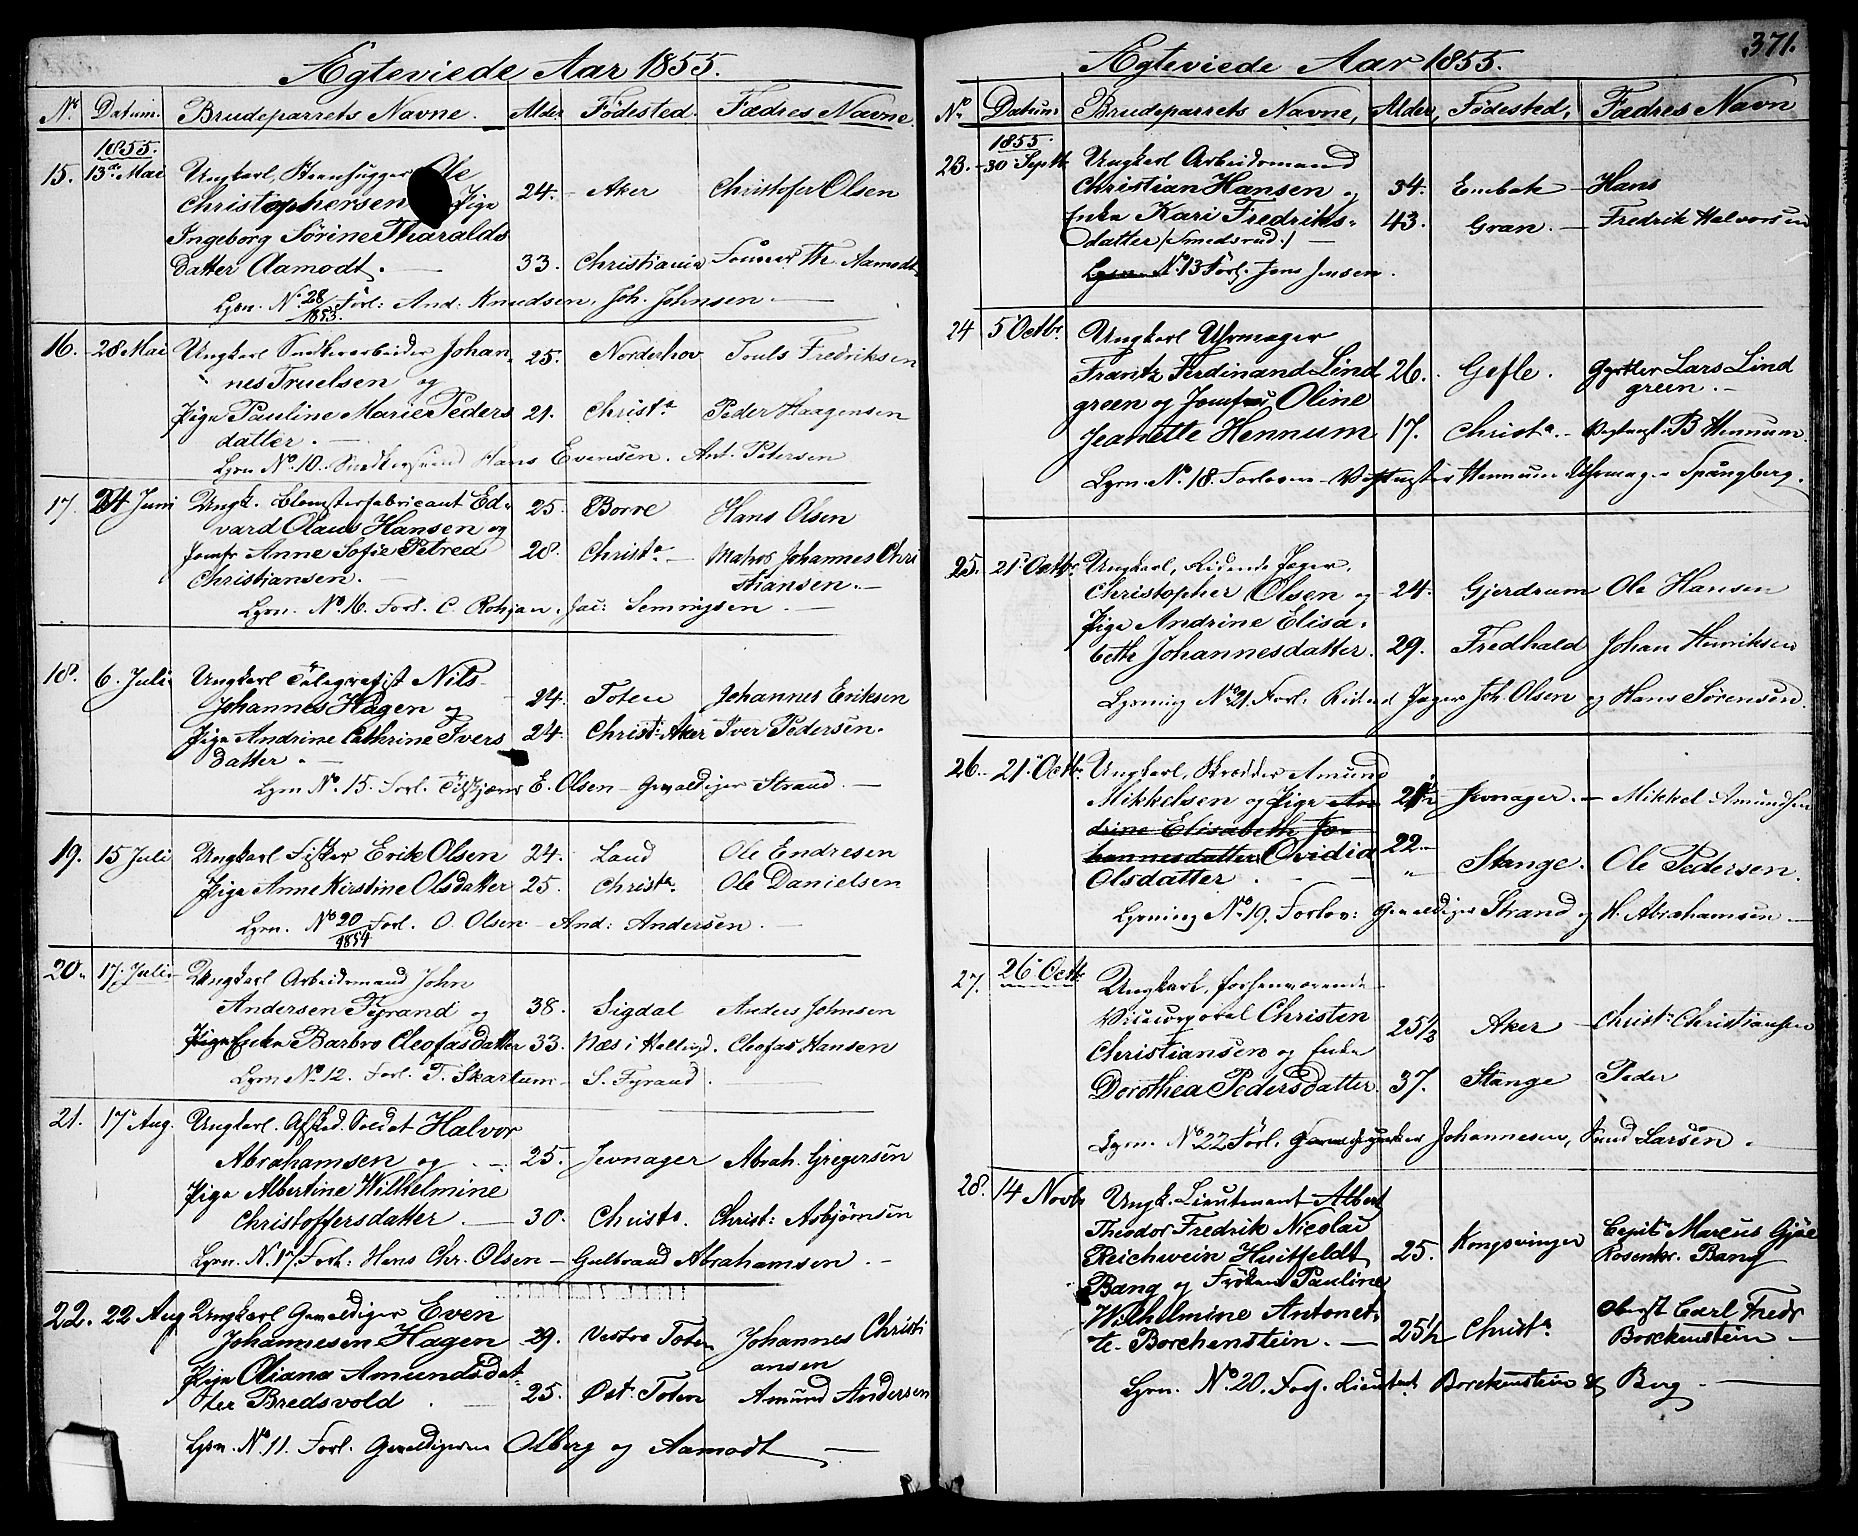 Ægteviede Aar 1855.
No Datum. Brudeparrets Navne. Alder Fødested. Fædres Navne.
1855.
15. 13de Mai Ungkarl, Steenhugger Ole
Christophersen Pige 24. Aker Christofer Olsen
Ingeborg Sørine Tharalds
datter Aamodt. 33. Christiania Th. Aamodt
Lysn. No 28/1853. Forl: And: Knudsen, Joh. Johnsen.
16. 28 Mai Ungkarl Snedkerarbeider Johan- 25. Norderhov Fredriksen
nes Truelsen og
Pige Pauline Marie Peders 21. Christa Peder Haagensen
datter.
Lysn. No 10. Snedkersvend Hans Evensen. Ant. Petersen
17. 24 Juni Ungk. Blomsterfabricant Ed- 25. Borre Hans Olsen
vard Olaus Hansen og
Jomfr Anne Sofie Petrea 28. Christa. Matros Johannes Chri
Christiansen. stiansen.
Lysn. No 16. Forl. C. Jac: Semmingsen
18. 6. Juli Ungkarl Telegrafist Nils
Johannes Hagen og 24. Toten Johannes Eriksen
Pige Andrine Cathrine Ivers 24. Christ: Aker Iver Pedersen.
datter.
Lysn No. 15. Forl. E. Olsen - Gevaldiger Strand.
19. 15 Juli Ungkarl Fisker Erik Olsen 24. Land Ole Endresen
Pige Anne Kirstine Olsdatter 25. Christa. Ole Danielsen
Lysn. No 20/1854 Forl. O. Olsen - And: Andersen.
20. 17. Juli Ungkarl Arbeidsmand John
Andersen Fyrand og 38. Sigdal Anders Johnsen
Pige Enke Barbro Cleofasdatter 33. Næs i Hallingd. Cleofas Hansen
Lysn No 12. Forl. T. Skartum - S. Fyrand.
21. 17 Aug. Ungkarl. Afsked. Soldat Halvor
Abrahamsen og 25. Jevnager Abrah. Gregersen
Pige Albertine Wilhelmine
Christoffersdatter. 30. Christa. Christ: Asbjørnsen
Lysn. N. 17. Forl: Hans Chr. Olsen - Gulbrand Abrahamsen.
22. 22 Aug Ungkarl Gevaldiger Even
Johannesen Hagen 29. Vestre Toten Johannes Christi
ansen
Pige Oliana Amundsdat-
ter Bredsvold 25. Øst. Toten Amund Andersen
Lysn. No. 11. Forl. Gevaldigerne Olberg og Aamodt
371.
Ægteviede Aar 1855.
No Datum. Brudeparrets Navne, Alder, Fødested, Fædres Navn
1855.
23. 30 Septb. Ungkarl Arbeidsmand
Christian Hansen og 34. Eidsbak Hans
Enke Kari Fredriks- 43. Gran. Fredrik Halvorsen
datter (Smedsrud.)
Lysn. No 13 Forl. Jens Jensen.
24 5 Octbr. Ungkarl Uhrmager
Frantz Ferdinand Lind 26. Gefle. Gjørtler Lars Lind
green og Jomfru Oline green.
Jeanette Hennum 17. Christa. B Hennum.
Lysn. No. 18. Forlovere Hennum Uhrmag. Spångberg.
25. 21 Octbr. Ungkarl, Ridende Jæger,
Christopher Olsen og 24. Gjerdrum Ole Hansen
Pige Andrine Elisa-
beth Johannesdatter. 29. Fredhald Johan Henriksen
Lysning No 21. Forl. Ridend Jæger Joh Olsen og Hans Sørensen.
26. 21 Octbr Ungkarl, Skredder Amund
Mikkelsen og Pige An 21 1/2 Jevnager. Mikkel Amundsen
drine Elisabeth Jo-
hannesdatter Ovidia 22.
Olsdatter. Stange. Ole Pedersen.
Lysning No 19. Forlov: Gevaldiger Strand og H. Abrahamsen
27. 26 Octb. Ungkarl, forhenværende
Christen 25 1/2 Aker Christn Christiansen
Christiansen og Enke
Dorothea Pedersdatter. 37. Stange Peder
Lysn. No 22 Forl. Johannesen, Larsen.
28. 14 Novbr Ungk. Lieutenant Albert
Theodor Fredrik Nicolai
Reichwein Huitfeldt 25. Kongsvinger Capit. Marcus Gjøe
Bang og Frøken Pauline Rosenkr. Bang
Wilhelmine Antonet- 25 1/2 Christa. Oberst Carl Fredr
te Borchenstein. Borckenstein
Lysn. No. 20. Forl. Lieutnt. Borckenstein & Berg